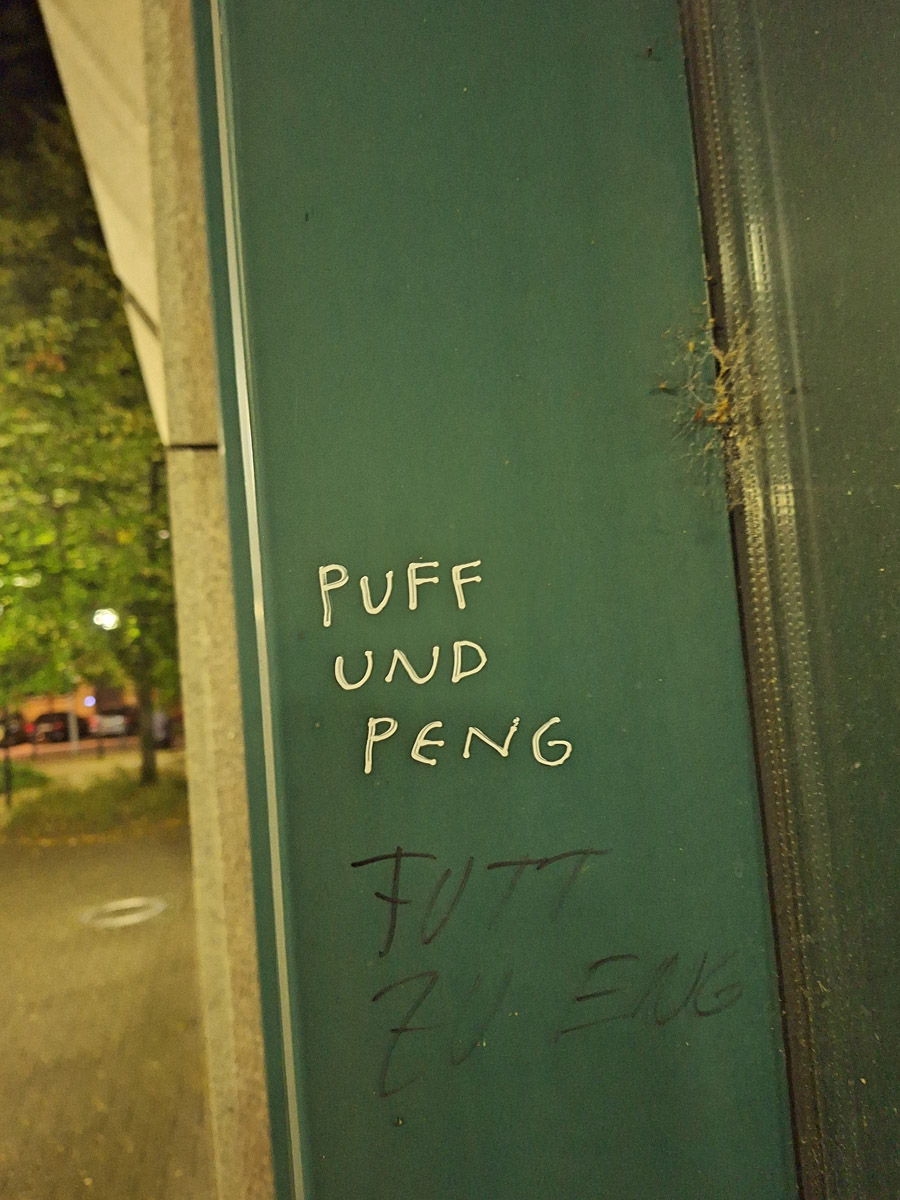 PUFF
UND
PENG
FUTT
ZU ENG